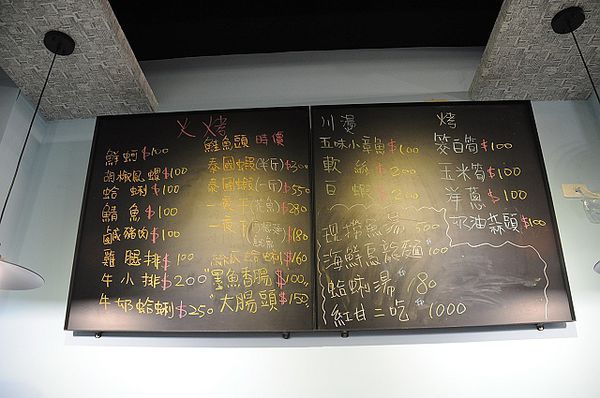 火烤
鮮蚵$100
胡椒鳳螺$100
蛤蜊$100
鯖魚$100
鹹豬肉$100
雞腿排$100
牛小排$200
牛奶蛤蜊$250
鮭魚頭 時價
泰國蝦(半斤)$300
泰國蝦(一斤)$550
一夜干(花魚)$280
一夜干 $180
絲瓜蛤蜊$160
"墨魚香腸$100"
"大腸頭$150"
川燙
五味小章魚$100
軟絲$200
白蝦$200
現撈魚湯 500
海鮮烏龍麵 100
蛤蜊湯 180
紅甘二吃 1000
烤
筊白筍$100
玉米筍$100
洋蔥$100
奶油蒜頭$100